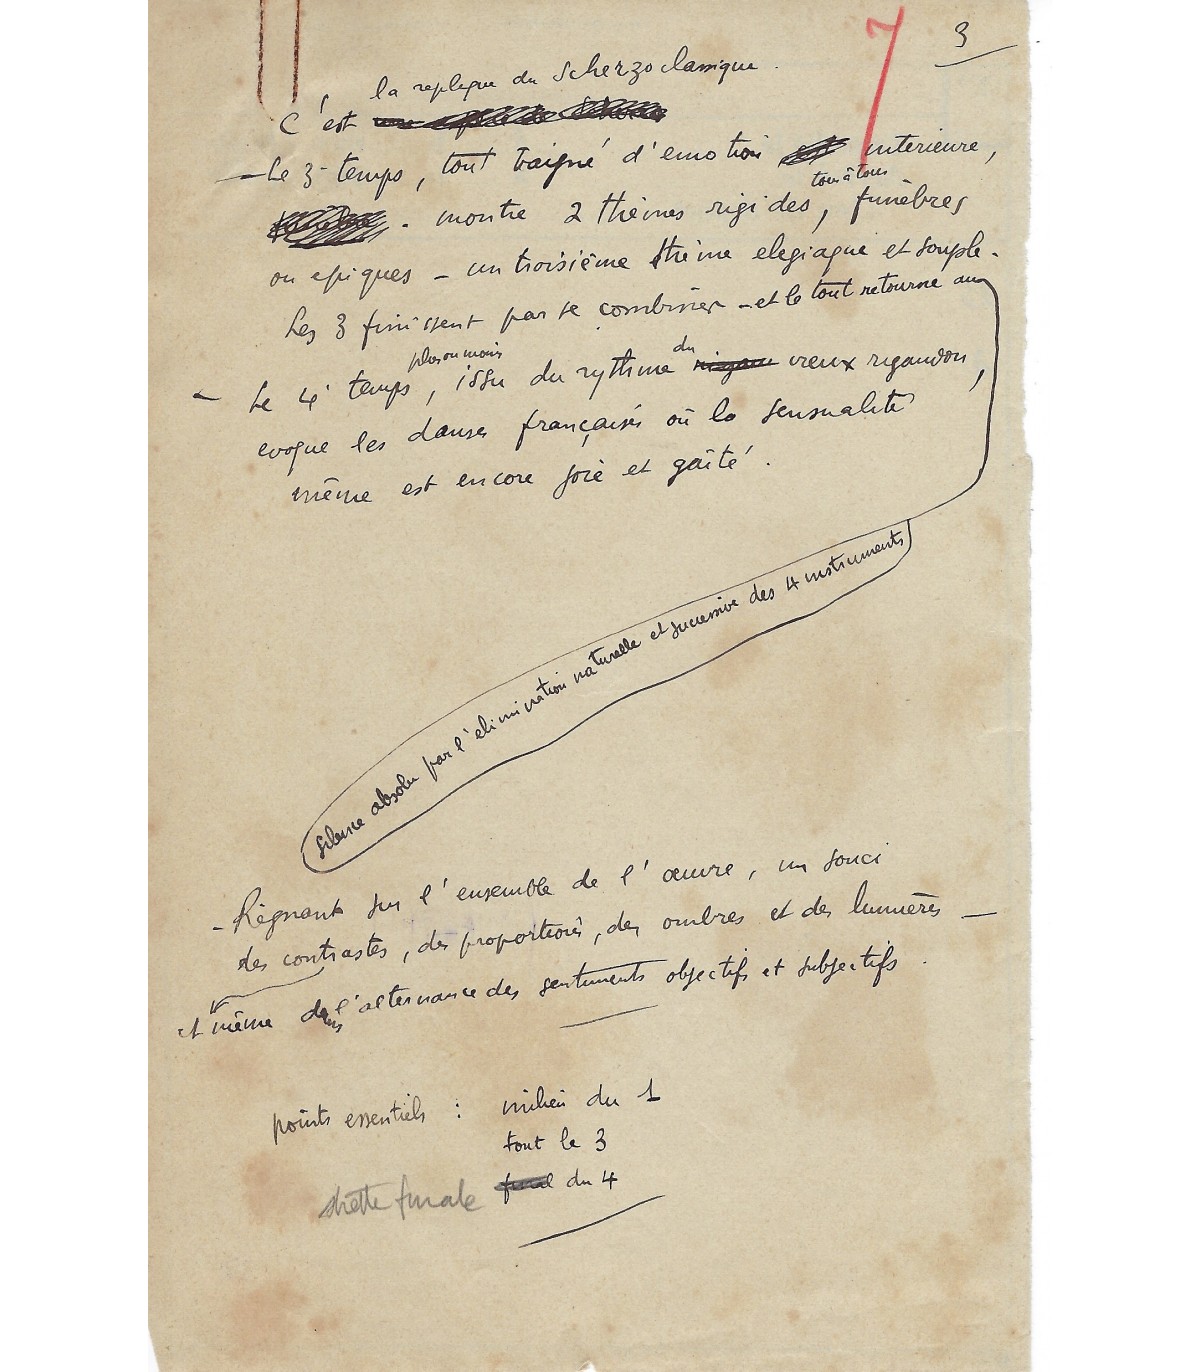 7
3
la replique du Scherzo classique.
C'est
– Le 3e temps, tout baigné d'emotion interieure,
tour à tour
montre 2 thèmes rigides, funèbres
ou epiques – un troisième thème elegiaque et souple.
Les 3 finissent par se combiner – et le tout retourne au
plus ou moins
du
– Le 4e temps, issu du rythme vieux rigaudon,
evoque les danses françaises où la sensualité
même est encore joie et gaîté.
silence absolu par l'elimination naturelle et successive des 4 instruments
– Règnant sur l'ensemble de l'œuvre, un souci
des contrastes, des proportions, des ombres et des lumières –
et même dans l'alternance des sentiments objectifs et subjectifs.
points essentiels : milieu du 1
tout le 3
final du 4
strette finale